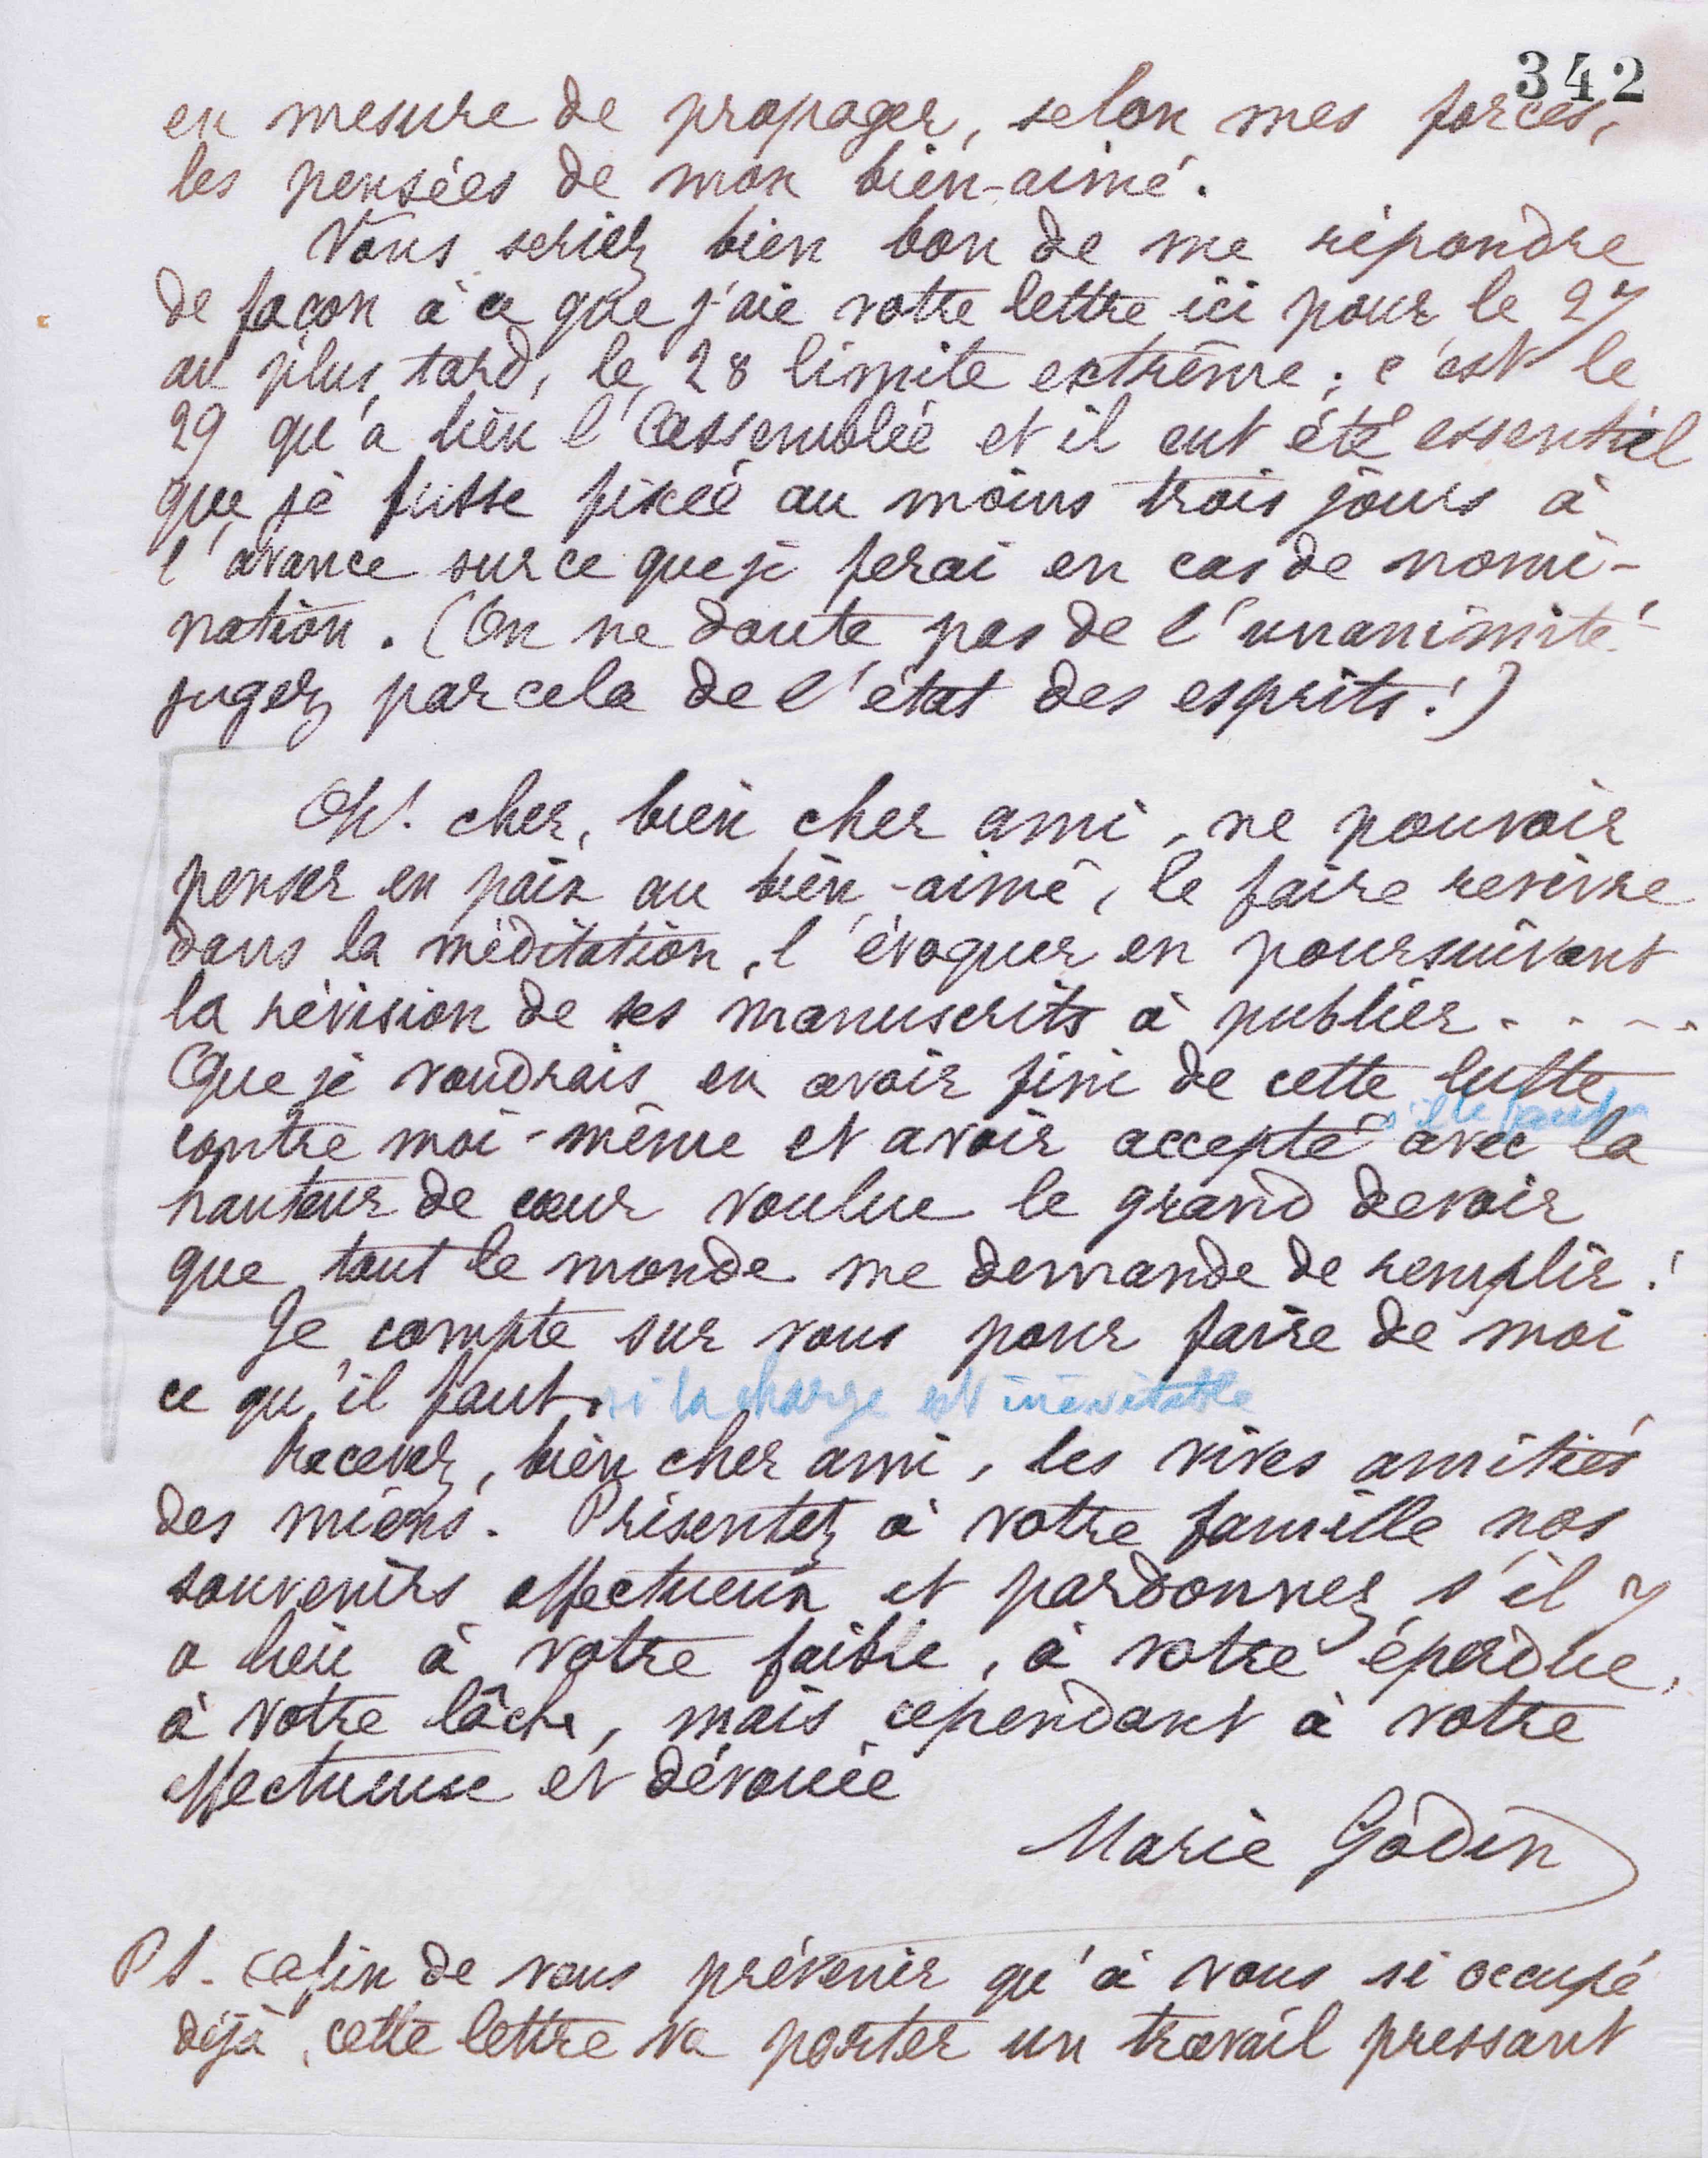 342
en mesure de propager, selon mes forces,
les pensées de mon bien-aimé.
Vous seriez bien bon de me répondre
de façon à ce que j'aie votre lettre ici pour le 27
au plus tard, le 28 limite extrême ; c'est le
29 qu'a lieu l'Assemblée et il eut été essentiel
que je fusse fixée au moins trois jours à
l'avance sur ce que je ferai en cas de nomi-
nation. (On ne doute pas de l'unanimité -
jugez par cela de l'état des esprits !)
Oh! cher, bien cher ami, ne pouvoir
penser en paix au bien-aimé, le faire revivre
dans la méditation, l'évoquer en poursuivant
la révision de ses manuscrits à publier . . . .
Que je voudrais en avoir fini de cette lutte
s'il le faut
contre moi-même et avoir accepté avec la
hauteur de cœur voulue le grand devoir
que tout le monde me demande de remplir !
Je compte sur vous pour faire de moi
ce qu'il faut. si la charge est inévitable
Recevez, bien cher ami, les vives amitiés
des miens. Présentez à votre famille nos
souvenirs affectueux et pardonnez s'il y
a lieu à votre faible, à votre éperdue,
à votre lâche, mais cependant à votre
affectueuse et dévouée
Marie Godin
PS. Afin de vous prévenir qu'à vous si occupé
déjà, cette lettre va porter un travail pressant